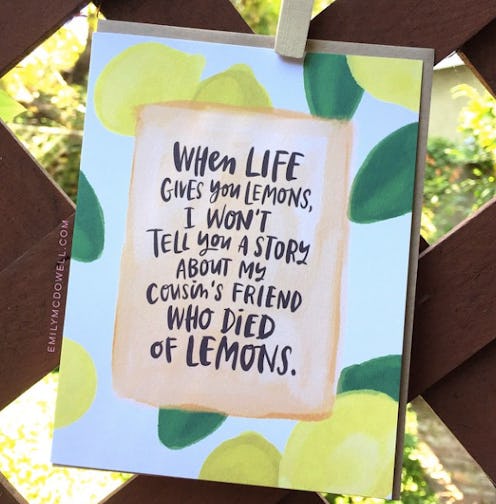 WHen LIFE
GIVES you LEMONS,
I WON'T
TELL you A STORY
ABOUT MY
COUSIN'S FRIEND
WHO DIED
OF LEMONS.
EMILYMCDOWELL.COM